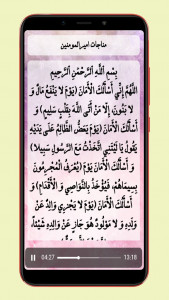 مناجات امیرالمومنین
بِسْمِ اللَّهِ الرَّحْمَنِ الرَّحِيمِ
اللَّهُمَّ إِنِّي أَسْأَلُكَ الْأَمَانَ (يَوْمَ لَا يَنْفَعُ مَالٌ وَ
لَا بَنُونَ، إِلَّا مَنْ أَتَى اللَّهَ بِقَلْبٍ سَلِيمٍ) وَ
أَسْأَلُكَ الْأَمَانَ (يَوْمَ يَعَضُّ الظَّالِمُ عَلَى يَدَيْهِ
يَقُولُ يَا لَيْتَنِي اتَّخَذْتُ مَعَ الرَّسُولِ سَبِيلًا)
وَ أَسْأَلُكَ الْأَمَانَ (يَوْمَ يُعْرَفُ الْمُجْرِمُونَ
بِسِيمَاهُمْ، فَيُؤْخَذُ بِالنَّوَاصِي وَ الْأَقْدَامِ) وَ
أَسْأَلُكَ الْأَمَانَ (يَوْمَ لَا يَجْزِي وَالِدٌ عَنْ
وَلَدِهِ وَ لَا مَوْلُودٌ هُوَ جَازٍ عَنْ وَالِدِهِ شَيْئاً،
04:27 13:18